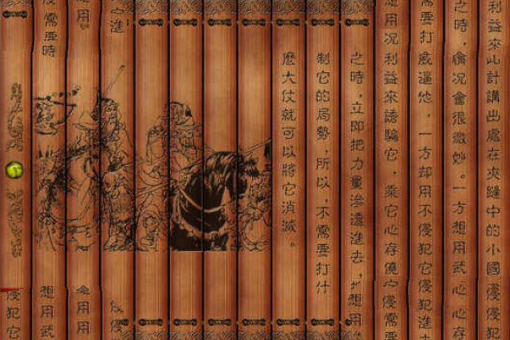 利益來此計講出處在夾縫中的小國侵侵犯
之時，情况會很微妙。一方想用武心心存
需要打威逼他，一方却用不侵犯它侵犯進去
用况利益來誘騙它，乘它心存僥
之時，立即把力量滲透進去，
制它的局勢，所以，不需要打什
麼大仗就可以將它消滅。
進
用
侵需要時
用用
想用武
侵犯它